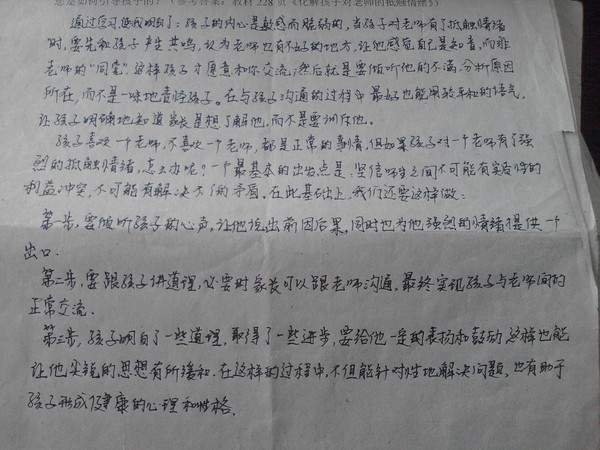 您是如何引导孩子的？（参考答案：教材 228 页《化解孩子对老师的抵触情绪》）
通过学习使我明白了：孩子的内心是敏感而脆弱的，当孩子对老师有了抵触情绪
时，要先和孩子产生共鸣，认为老师也有不好的地方，让他感觉自己是知音，而非
老师的“同党”，这样孩子才愿意和你交流，然后就是要倾听他的不满，分析原因
所在，而不是一味地责怪孩子。在与孩子沟通的过程中，最好也能用放平和的语气，
让孩子明确地知道家长是想了解他，而不是要训斥他。
孩子喜欢一个老师，不喜欢一个老师，都是正常的事情，但如果孩子对一个老师有了强
烈的抵触情绪，怎么办呢？一个最基本的出发点是：坚信师生之间不可能有实质性的
利益冲突，不可能有解决不了的矛盾。在此基础上，我们还要这样做：
第一步，要倾听孩子的心声，让他说出前因后果，同时也为他强烈的情绪提供一个
出口．
第二步，要跟孩子讲道理，必要时家长可以跟老师沟通，最终实现孩子与老师间的
正常交流．
第三步，孩子明白了一些道理，取得了一些进步，要给他一定的表扬和鼓励，这样也能
让他尖锐的思想有所缓和．在这样的过程中，不但能针对性地解决问题，也有助于
孩子形成健康的心理和性格．